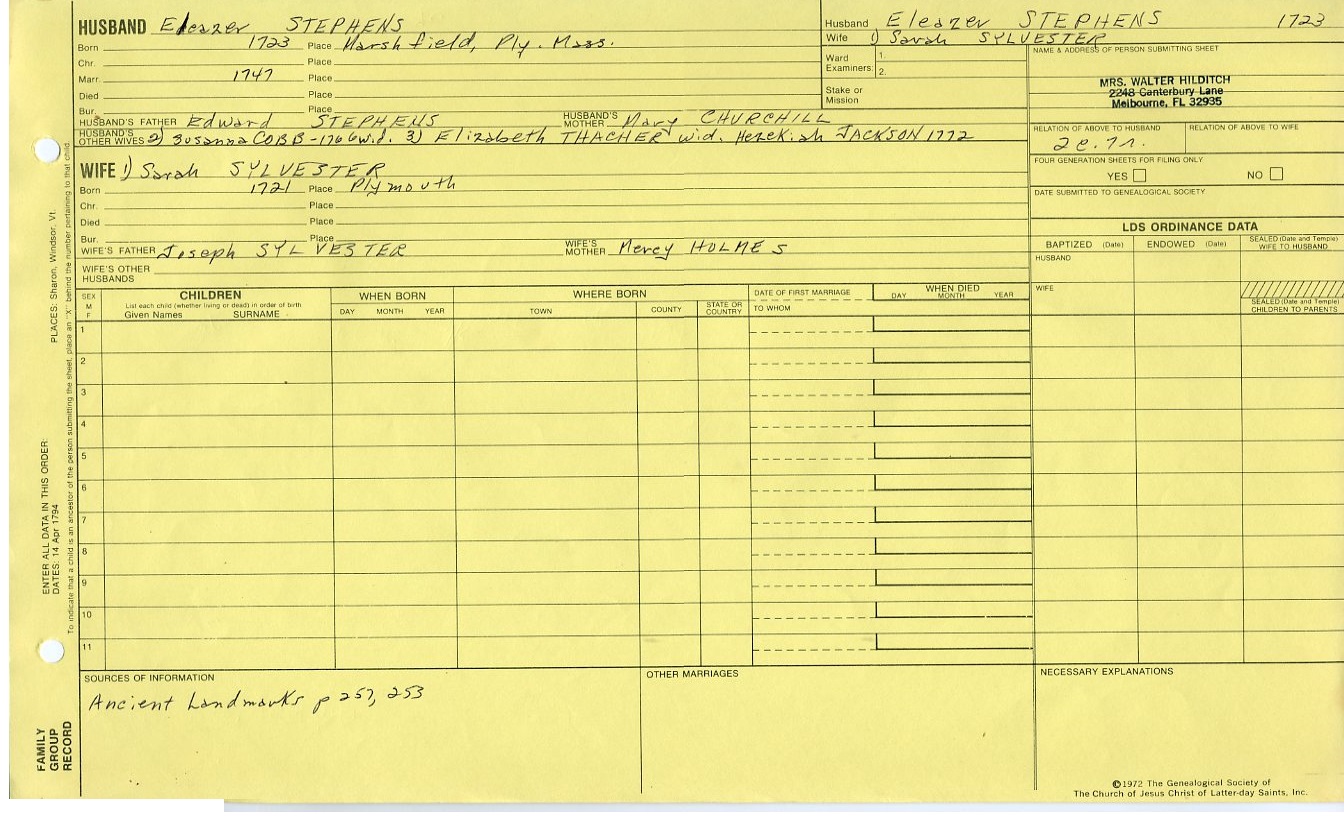 HUSBAND Eleazer STEPHENS
Born 1723 Place Marshfield, Ply. Mass.
Chr. Place
Marr. 1747 Place
Died Place
Bur. Place
HUSBAND'S FATHER Edward STEPHENS HUSBAND'S MOTHER Mary CHURCHILL
HUSBAND'S OTHER WIVES 2) Susanna COBB - 1766 wid. 3) Elizabeth THACHER wid. Hezekiah JACKSON 1772
WIFE 1) Sarah SYLVESTER
Born 1721 Place Plymouth
Chr. Place
Died Place
Bur. Place
WIFE'S FATHER Joseph SYLVESTER WIFE'S MOTHER Mercy HOLMES
WIFE'S OTHER HUSBANDS
Husband Eleazer STEPHENS 1723
Wife 1) Sarah SYLVESTER
Ward 1.
Examiners: 2.
Stake or
Mission
NAME & ADDRESS OF PERSON SUBMITTING SHEET
MRS. WALTER HILDITCH
2248 Canterbury Lane
Melbourne, FL 32935
RELATION OF ABOVE TO HUSBAND RELATION OF ABOVE TO WIFE
FOUR GENERATION SHEETS FOR FILING ONLY
YES NO
DATE SUBMITTED TO GENEALOGICAL SOCIETY
LDS ORDINANCE DATA
BAPTIZED (Date) ENDOWED (Date) SEALED (Date and Temple) WIFE TO HUSBAND
HUSBAND
WIFE
SEALED (Date and Temple) CHILDREN TO PARENTS
SEX M F CHILDREN WHEN BORN WHERE BORN DATE OF FIRST MARRIAGE WHEN DIED
List each child (whether living or dead) in order of birth
Given Names SURNAME DAY MONTH YEAR TOWN COUNTY STATE OR COUNTRY TO WHOM DAY MONTH YEAR
1
2
3
4
5
6
7
8
9
10
11
SOURCES OF INFORMATION
Ancient Landmarks p 257, 253
OTHER MARRIAGES
NECESSARY EXPLANATIONS
©1972 The Genealogical Society of
The Church of Jesus Christ of Latter-day Saints, Inc.
FAMILY
GROUP
RECORD
ENTER ALL DATA IN THIS ORDER:
DATES: 14 Apr 1794 PLACES: Sharon, Windsor, Vt.
To indicate that a child is an ancestor of the person submitting the sheet, place an "X" behind the number pertaining to that child.